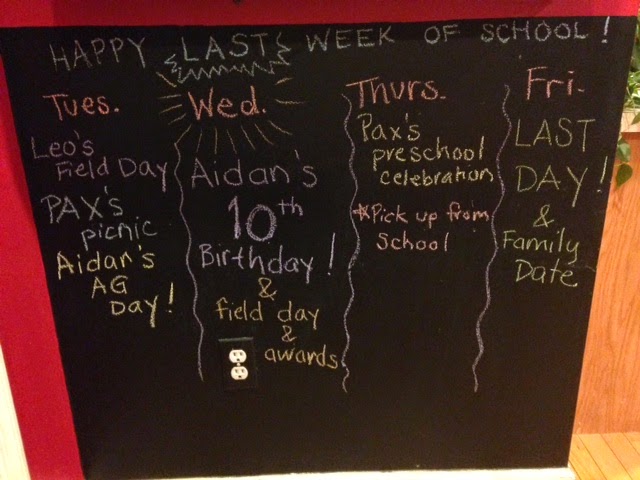 HAPPY LAST WEEK OF SCHOOL!
Tues.
Leo's
Field Day
PAX's
picnic
Aidan's
AG
Day!
Wed.
Aidan's
10th
Birthday!
&
field day
&
awards
Thurs.
Pax's
preschool
celebration
*Pick up from
school
Fri.
LAST
DAY!
&
Family
Date